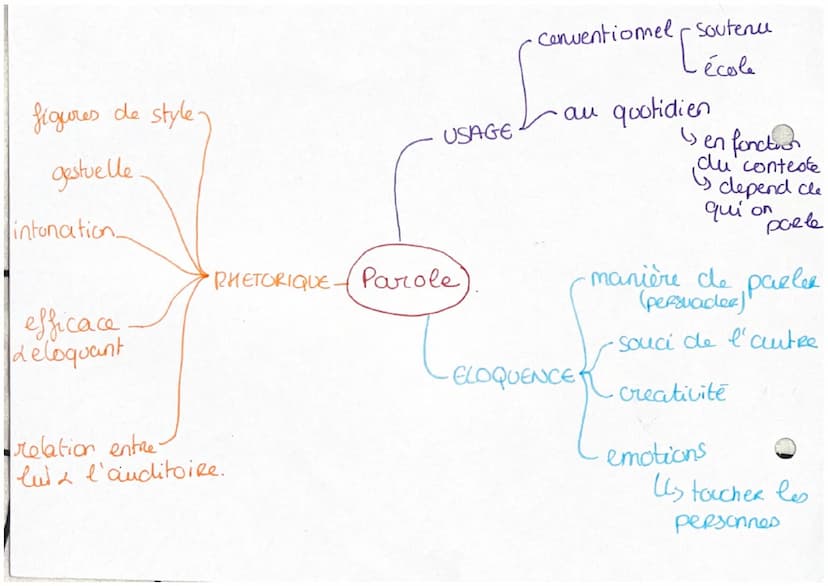 Parole
USAGE
conventionnel
soutenu
école
au quotidien
↳ en fonction
du contexte
↳ depend de
qui on
parle
ELOQUENCE
manière de parler
(persuader)
souci de l'autre
creativité
emotions
↳ toucher les
personnes
RHETORIQUE
figures de style
gestuelle
intonation
efficace
& eloquant
relation entre
lui & l'auditoire.